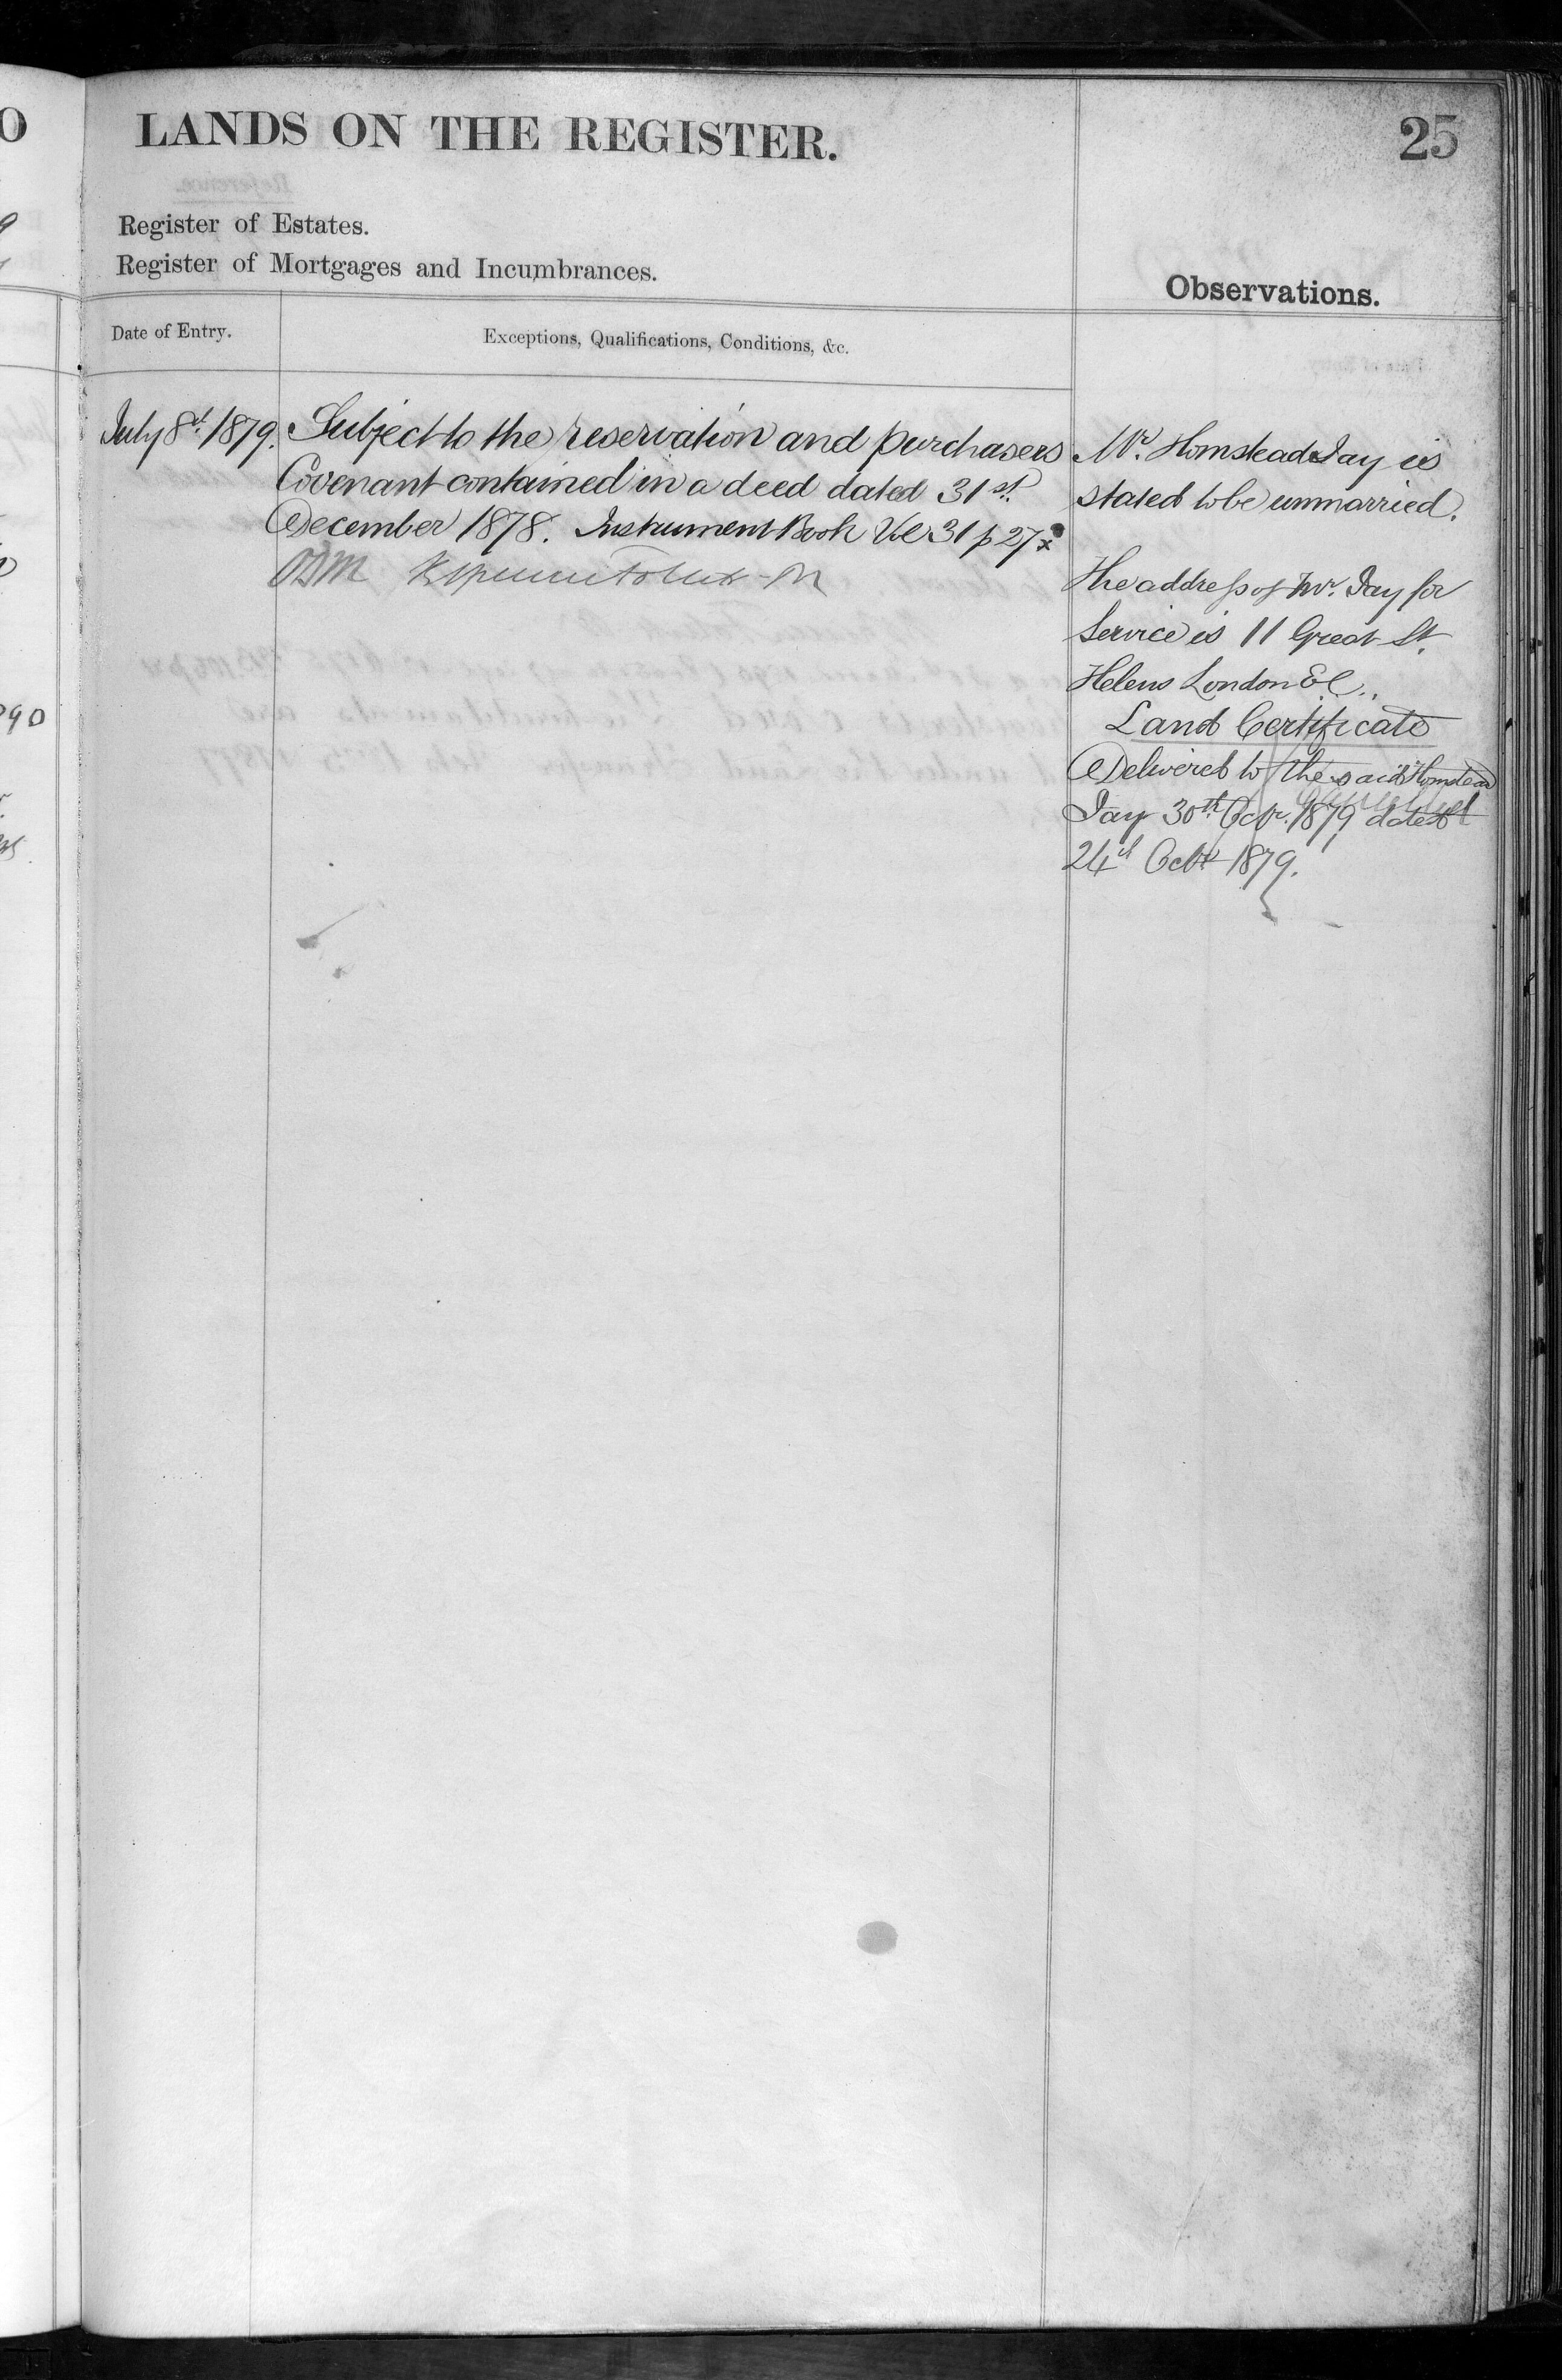 LANDS ON THE REGISTER.
25
Register of Estates.
Register of Mortgages and Incumbrances.
Observations.
Date of Entry.
Exceptions, Qualifications, Conditions, &c.
July 8th 1879. Subject to the reservation and purchasers
Covenant contained in a deed dated 31st.
December 1878. Instrument Book Vol 31 p 27 x
Mr. Homstead Jay is
stated to be unmarried.
The address of Mr. Jay for
Service is 11 Great St.
Helens London EC.
Land Certificate
Delivered to the said Homstead
Jay 30th Octr. 1879 dated
24th Octr 1879.